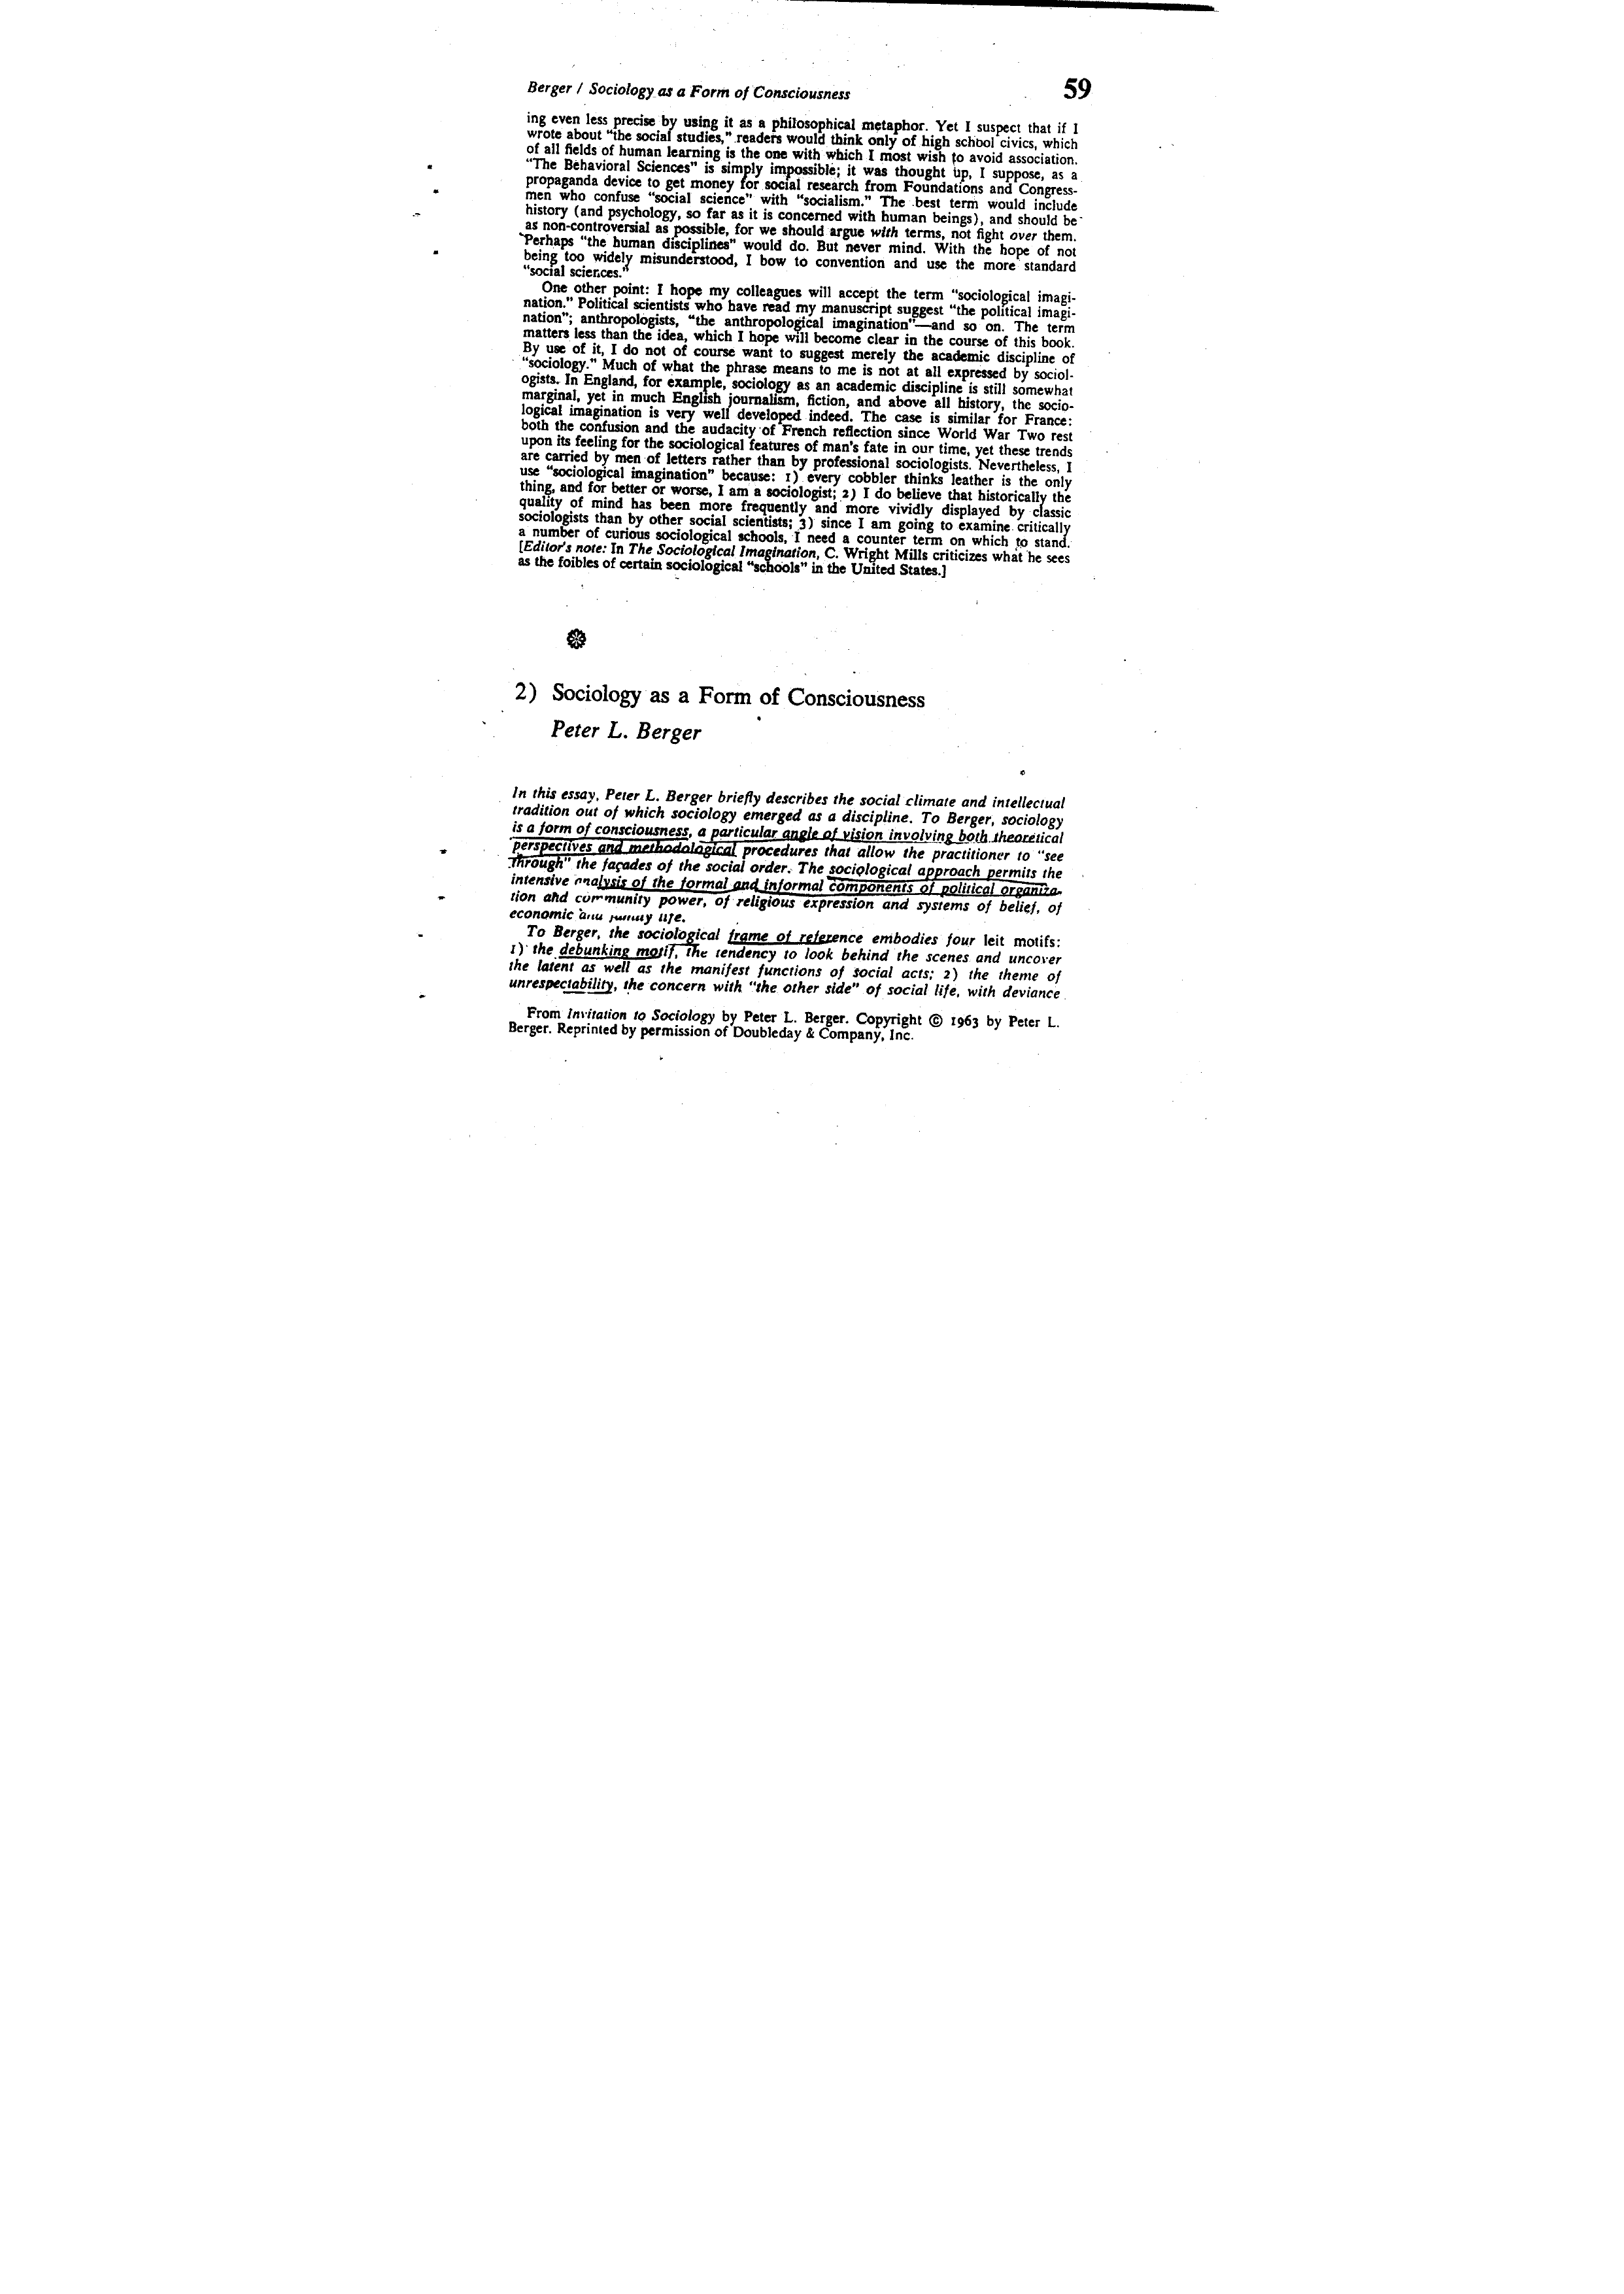 Berger / Sociology as a Form of Consciousness 59
ing even less precise by using it as a philosophical metaphor. Yet I suspect that if I
wrote about "the social studies," readers would think only of high school civics, which
of all fields of human learning is the one with which I most wish to avoid association.
"The Behavioral Sciences" is simply impossible; it was thought up, I suppose, as a
propaganda device to get money for social research from Foundations and Congress-
men who confuse "social science" with "socialism." The best term would include
history (and psychology, so far as it is concerned with human beings), and should be
as non-controversial as possible, for we should argue with terms, not fight over them.
Perhaps "the human disciplines" would do. But never mind. With the hope of not
being too widely misunderstood, I bow to convention and use the more standard
"social sciences."
One other point: I hope my colleagues will accept the term "sociological imagi-
nation." Political scientists who have read my manuscript suggest "the political imagi-
nation"; anthropologists, "the anthropological imagination"—and so on. The term
matters less than the idea, which I hope will become clear in the course of this book.
By use of it, I do not of course want to suggest merely the academic discipline of
"sociology." Much of what the phrase means to me is not at all expressed by sociol-
ogists. In England, for example, sociology as an academic discipline is still somewhat
marginal, yet in much English journalism, fiction, and above all history, the socio-
logical imagination is very well developed indeed. The case is similar for France:
both the confusion and the audacity of French reflection since World War Two rest
upon its feeling for the sociological features of man's fate in our time, yet these trends
are carried by men of letters rather than by professional sociologists. Nevertheless, I
use "sociological imagination" because: 1) every cobbler thinks leather is the only
thing, and for better or worse, I am a sociologist; 2) I do believe that historically the
quality of mind has been more frequently and more vividly displayed by classic
sociologists than by other social scientists; 3) since I am going to examine critically
a number of curious sociological schools, I need a counter term on which to stand.
[Editor's note: In The Sociological Imagination, C. Wright Mills criticizes what he sees
as the foibles of certain sociological "schools" in the United States.]
2) Sociology as a Form of Consciousness
Peter L. Berger
In this essay, Peter L. Berger briefly describes the social climate and intellectual
tradition out of which sociology emerged as a discipline. To Berger, sociology
is a form of consciousness, a particular angle of vision involving both theoretical
perspectives and methodological procedures that allow the practitioner to "see
through" the façades of the social order. The sociological approach permits the
intensive analysis of the formal and informal components of political organiza-
tion and community power, of religious expression and systems of belief, of
economic and family life.
To Berger, the sociological frame of reference embodies four leit motifs:
1) the debunking motif, the tendency to look behind the scenes and uncover
the latent as well as the manifest functions of social acts; 2) the theme of
unrespectability, the concern with "the other side" of social life, with deviance
From Invitation to Sociology by Peter L. Berger. Copyright © 1963 by Peter L.
Berger. Reprinted by permission of Doubleday & Company, Inc.